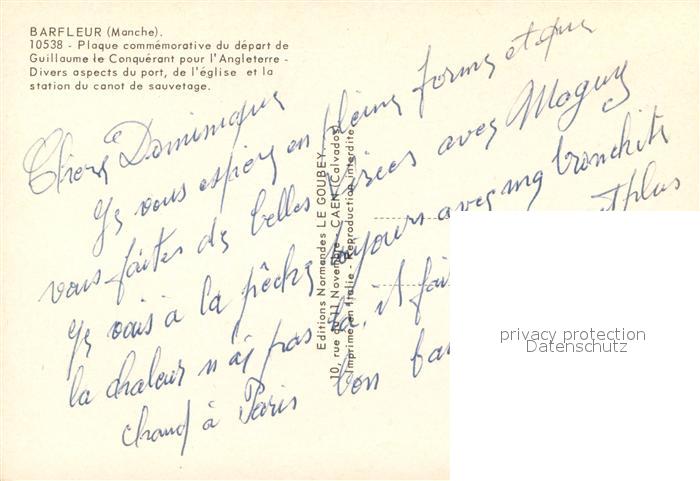 BARFLEUR (Manche).
10538 - Plaque commémorative du départ de
Guillaume le Conquérant pour l'Angleterre -
Divers aspects du port, de l'église et la
station du canot de sauvetage.
Chère Dominique
Je vous espère en pleine forme et que
vous faites de belles virées avec Maguy
Je vais à la pêche toujours avec ma bronchite
la chaleur n'est pas là, il fait plus
chaud à Paris bon
Editions Normandes LE GOUBEY
10, rue du 11 Novembre - CAEN (Calvados)
Imprimé en Italie - Reproduction interdite
privacy protection
Datenschutz